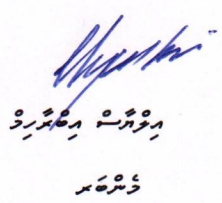 އިލްޔާސް އިބްރާހިމް
މެންބަރ